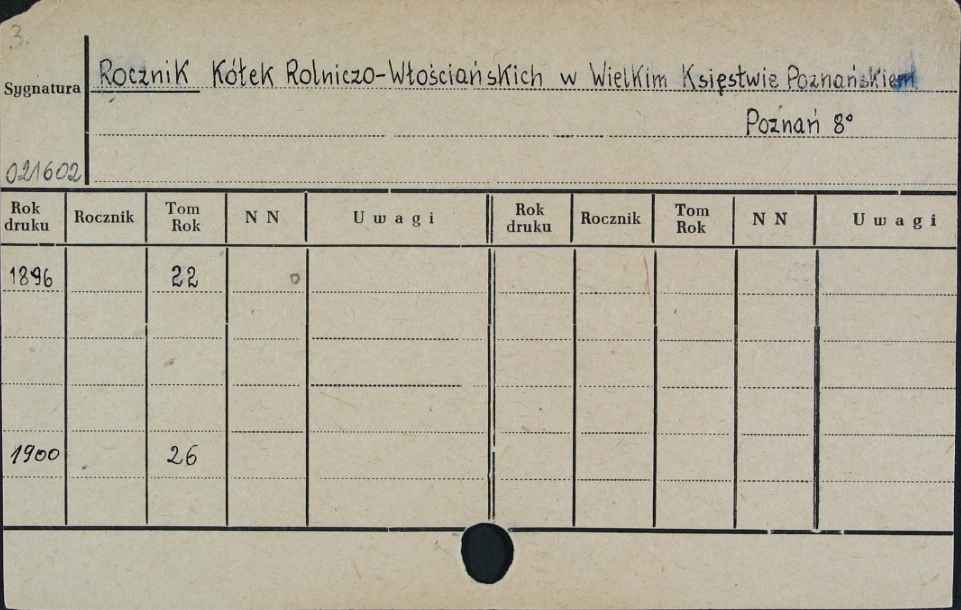 3.
Sygnatura
Rocznik Kółek Rolniczo-Włościańskich w Wielkim Księstwie Poznańskiem
Poznań 8°
021602
Rok druku Rocznik Tom Rok NN Uwagi Rok druku Rocznik Tom Rok NN Uwagi
1896 22
1900 26